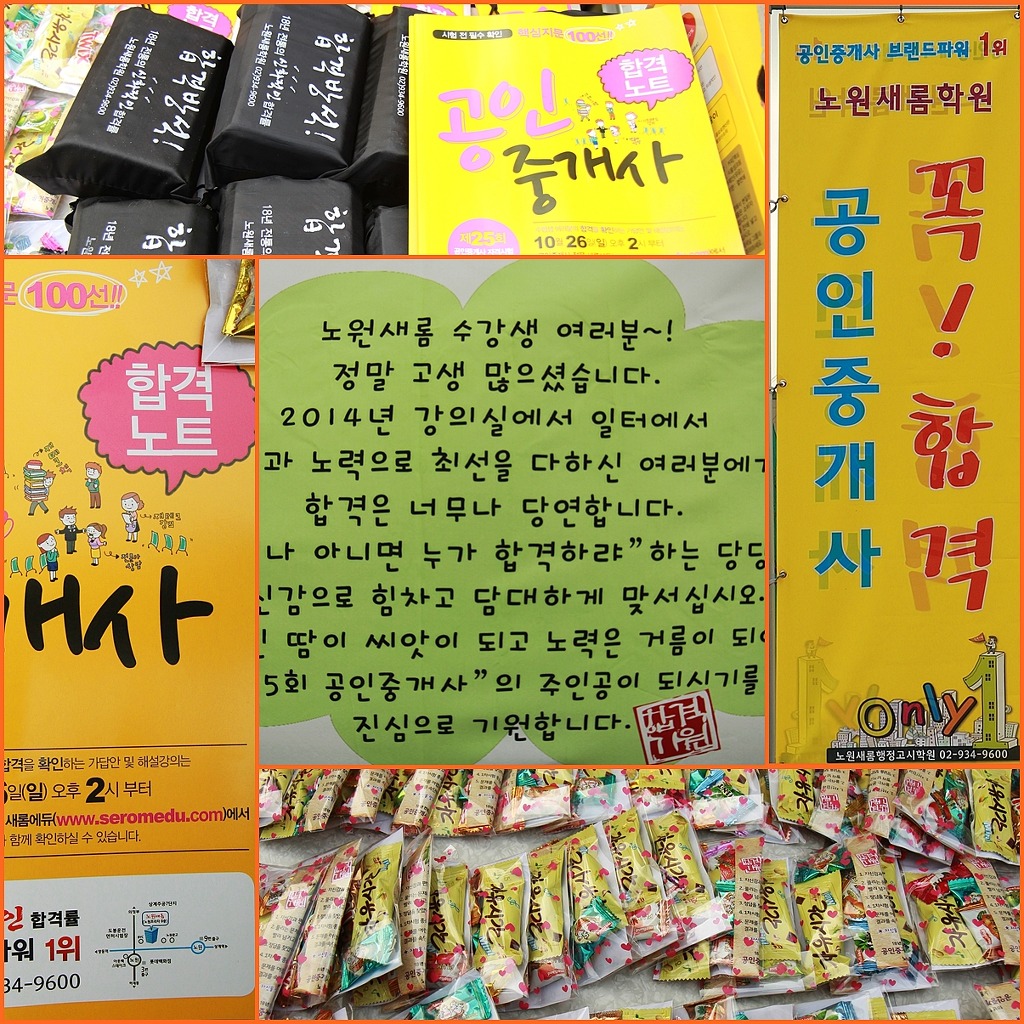 합격방석!
18년 전통의 신화적인 합격률
노원새롬학원 02)934-9600
합격방석!
18년 전통의 신화적인 합격률
노원새롬학원 02)934-9600
시험 전 필수 확인
핵심지문 100선!!
합격
노트
공인
중개사
제25회
10월 26일(일) 오후 2시 부터
공인중개사 브랜드파워 1위
노원새롬학원
꼭! 합격
공인중개사
only 1
노원새롬행정고시학원 02-934-9600
문 100선!!
합격
노트
개사
합격을 확인하는 가답안 및 해설강의는
일(일) 오후 2시 부터
새롬에듀(www.seromedu.com)에서
함께 확인하실 수 있습니다.
인 합격률
파워 1위
34-9600
노원새롬 수강생 여러분~!
정말 고생 많으셨습니다.
2014년 강의실에서 일터에서
과 노력으로 최선을 다하신 여러분에게
합격은 너무나 당연합니다.
나 아니면 누가 합격하랴”하는 당당
신감으로 힘차고 담대하게 맞서십시오.
땀이 씨앗이 되고 노력은 거름이 되어
5회 공인중개사”의 주인공이 되시기를
진심으로 기원합니다.
합격
기원
자유시간
자유시간
자유시간
자유시간